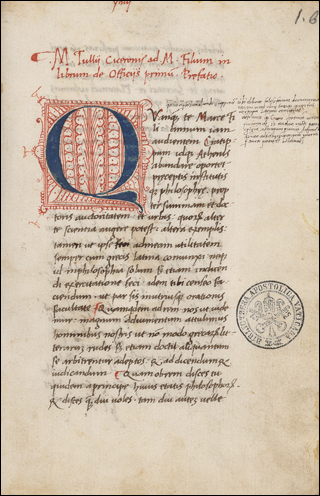 1.6
M. Tullij Ciceronis ad. M. Filium in
librum de Officijs primū Prefatio.
QVanq; te Marce Fi
li annum iam
audientem Cratip
pum idq; Athenis
abundare oportet
preceptis institutisq;
philosophie. prop
ter summam et doc
toris auctoritatem et urbis. quorȝ alter
te scientia augere potest. altera exemplis
tamen ut ipse feci ad meam utilitatem
semper cum grecis latina coniunxi neq;
id in philosophia solum sȝ etiam in dicen
di exercitatione feci. idem tibi censeo fa
ciendum. ut par sis in utriusq; orationis
facultate. Quamquidem ad rem nos ut vide
mur. magnum adiumentum attulimus
hominibus nostris ut nō modo grecarȝ lit
terarȝ rudes sȝ etiam docti aliquantum
se arbitrentur adeptos. & ad dicendum &
iudicandum. Quam obrem disces tu
quidem a principe huius etatis philosophorȝ.
& disces q̄ȝ diu voles. tam diu autē velle
BIBLIOTECA APOSTOLICA VATICANA